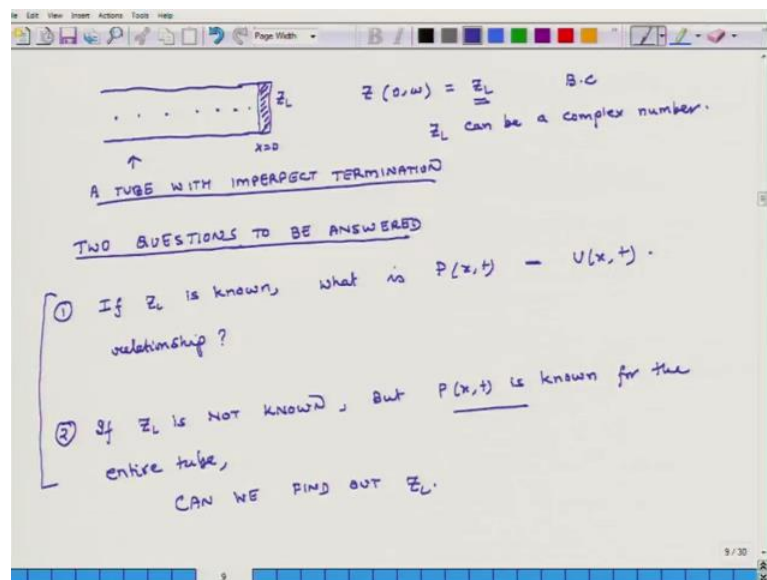 le Edit View Insert Actions Tools Help
Page Width
B I
Z_L
Z (0,ω) = Z_L
B.C
Z_L can be a complex number.
x=0
A TUBE WITH IMPERPECT TERMINATION
TWO QUESTIONS TO BE ANSWERED
① If Z_L is known, what is P(x,t) – U(x,t).
relationship?
② If Z_L is NOT KNOWN, But P(x,t) is known for the
entire tube,
CAN WE FIND OUT Z_L.
9 / 30
9